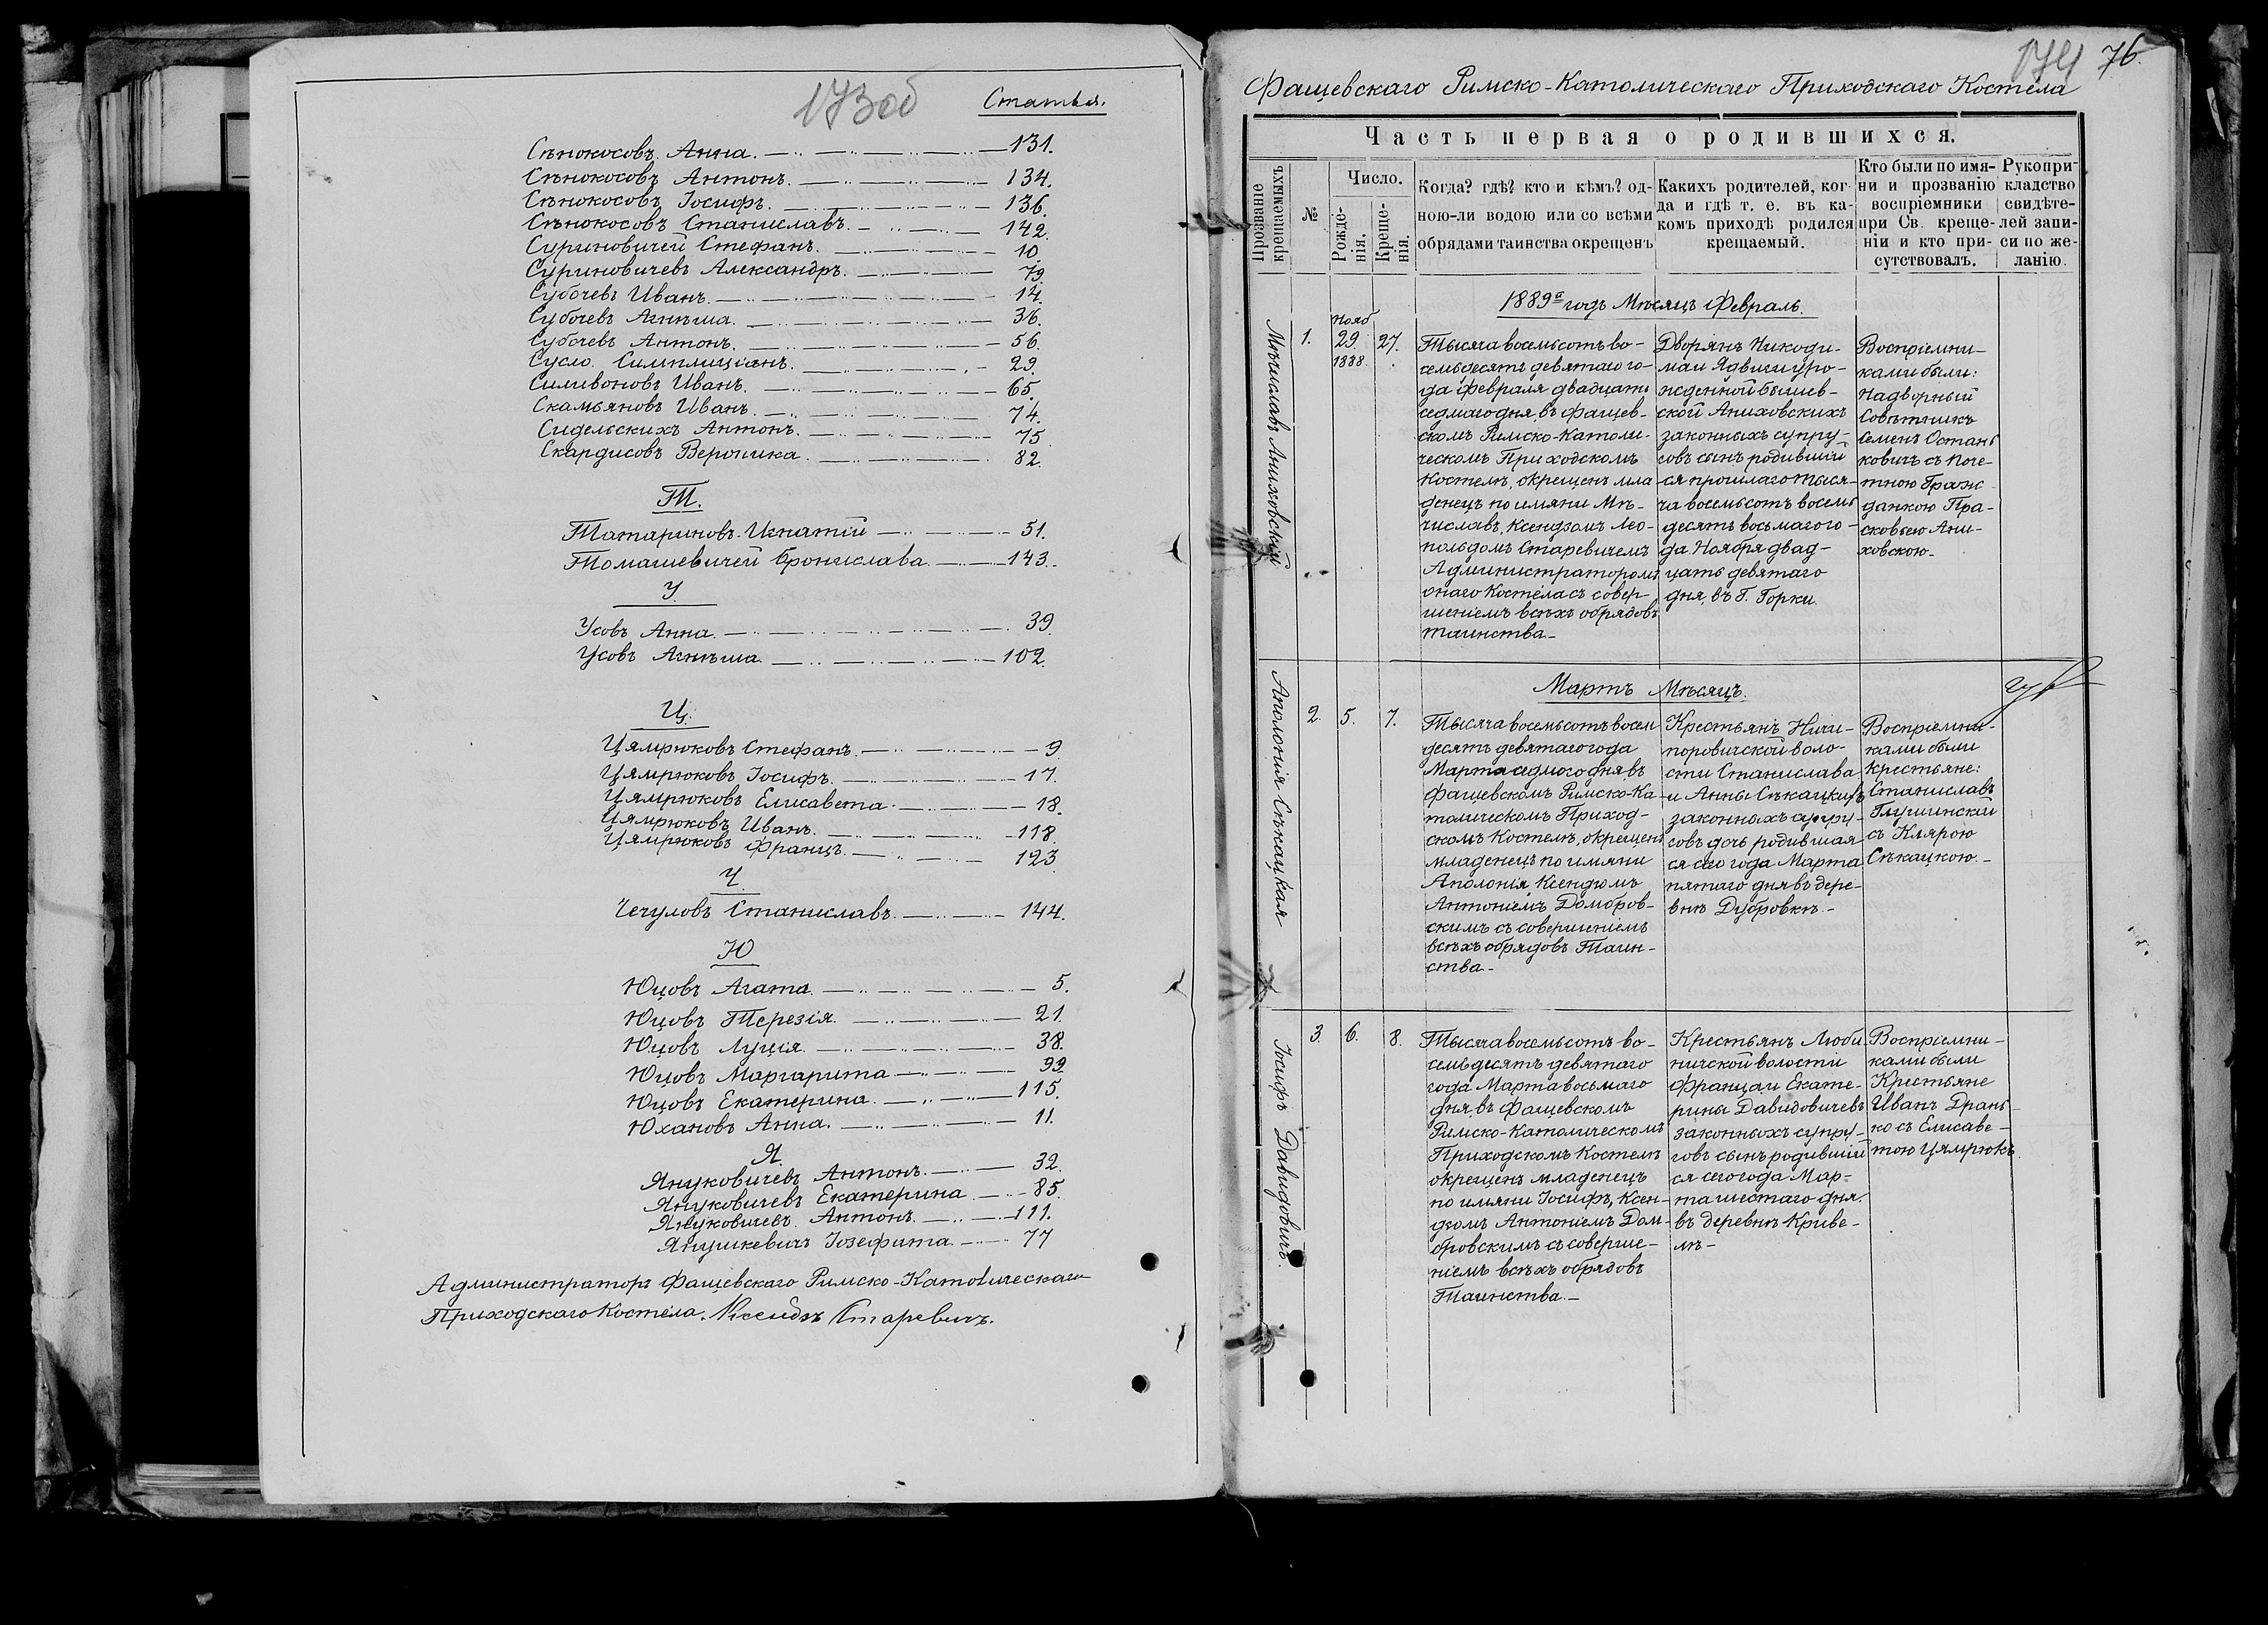 173об
Статья.
Сѣнокосовъ Анна. 131.
Сѣнокосовъ Антонъ. 134.
Сѣнокосовъ Іосифъ. 136.
Сѣнокосовъ Станиславъ. 142.
Суриновичей Стефанъ. 10.
Суриновичевъ Александръ. 79.
Субочевъ Иванъ. 14.
Субочевъ Агнѣша. 36.
Субочевъ Антонъ. 56.
Сусло Симплиціанъ. 29.
Силивоновъ Иванъ. 65.
Скамьяновъ Иванъ. 74.
Сидельскихъ Антонъ. 75.
Скардисовъ Вероника. 82.
Т.
Татариновъ Игнатій 51.
Томашевичей Брониславa. 143.
У
Усовъ Анна. 39.
Усовъ Агнѣша. 102.
Ц.
Цямрюковъ Стефанъ. 9.
Цямрюковъ Іосифъ. 17.
Цямрюковъ Елисавета. 18.
Цямрюковъ Иванъ. 118.
Цямрюковъ Францъ. 123.
Ч.
Чечуловъ Станиславъ. 144.
Ю
Юцовъ Агата. 5.
Юцовъ Терезія. 21.
Юцовъ Луція. 38.
Юцовъ Маргарита 99.
Юцовъ Екатерина. 115.
Юхановъ Анна. 11.
Я.
Януковичевъ Антонъ. 32.
Януковичевъ Екатерина. 85.
Януковичевъ Антонъ. 111.
Янушкевичъ Іозефата. 77
Администраторъ Фащевскаго Римско-Католическаго
Приходскаго Костела. Ксендзъ Старевичъ.
174 76.
Фащевскаго Римско-Католическаго Приходскаго Костела
Часть первая о родившихся.
Прозваніе крещаемыхъ
№
Число.
Рожде-
нія.
Креще-
нія.
Когда? гдѣ? кто и кѣмъ? од-
ною-ли водою или со всѣми
обрядами таинства окрещенъ
Какихъ родителей, ког-
да и гдѣ т. е. въ ка-
комъ приходѣ родился
крещаемый.
Кто были по имя-
ни и прозванію
воспріемники
при Св. креще-
ніи и кто при-
сутствовалъ.
Рукопри-
кладство
свидѣте-
лей запи-
си по же-
ланію.
1889й годъ Мѣсяцъ Февраль.
Мѣчиславъ Аниховскій
1.
Нояб
29
1888.
27.
Тысяча восемьсотъ во-
семьдесятъ девятаго го-
да февраля двадцать
седмаго дня, въ Фащев-
скомъ Римско-Католи-
ческомъ Приходскомъ
Костелѣ, окрещенъ мла-
денецъ по имяни Мѣ-
числавъ, Ксендзомъ Лео-
польдомъ Старевичемъ
Администраторомъ
онаго Костела съ совер-
шеніемъ всѣхъ обрядовъ
таинства-
Дворянъ Никоди-
ма и Ядвиги уро-
жденной Бышев-
ской Аниховскихъ
законныхъ супру-
говъ сынъ родившій
ся прошлаго тыся-
ча восемьсотъ восемь
десятъ восьмаго го-
да Ноября двад-
цать девятаго
дня, въ г. Горки.
Воспріемни-
ками были:
Надворный
Совѣтникъ
Семенъ Остань
ковичъ съ Поче-
тною Граж-
данкою Пра-
сковьею Ани-
ховскою-
Мартъ Мѣсяцъ.
Аполонія Сѣкацкая
2. 5. 7.
Тысяча восемьсотъ восем
десятъ девятаго года
Марта седмого дня въ
Фащевскомъ Римско-Ка-
толическомъ Приход-
скомъ Костелѣ, окрещенъ
младенецъ по имяни
Аполонія, Ксендзомъ
Антоніемъ Домбров-
скимъ съ совершеніемъ
всѣхъ обрядовъ Таин-
ства-
Крестьянъ Ничи-
поровичской воло-
сти Станислава
и Анны Сѣкацкихъ
законныхъ супру-
говъ дочь родившая
ся сего года Марта
пятаго дня въ дере-
внѣ Дубровкѣ.-
Воспріемни-
ками были
Крестьяне:
Станиславъ
Глушинскій
съ Клярою
Сѣкацкою.-
Іосифъ Давидовичъ.
3. 6. 8.
Тысяча восемьсотъ во-
семьдесятъ девятаго
года Марта восьмаго
дня, въ Фащевскомъ
Римско-Католическомъ
Приходскомъ Костелѣ
окрещенъ младенецъ
по имяни Іосифъ, Ксен-
дзомъ Антоніемъ Дом-
бровскимъ съ соверше-
ніемъ всѣхъ обрядовъ
Таинства.-
Крестьянъ Люби-
ничской волости
Франца и Екате-
рины Давидовичевъ
законныхъ супру-
говъ сынъ родившій
ся сего года Мар-
та шестаго дня.
въ деревнѣ Криве-
лѣ-
Воспріемни-
ками были
Крестьяне
Иванъ Драпь-
ко съ Елисаве-
тою Цямрюкъ.